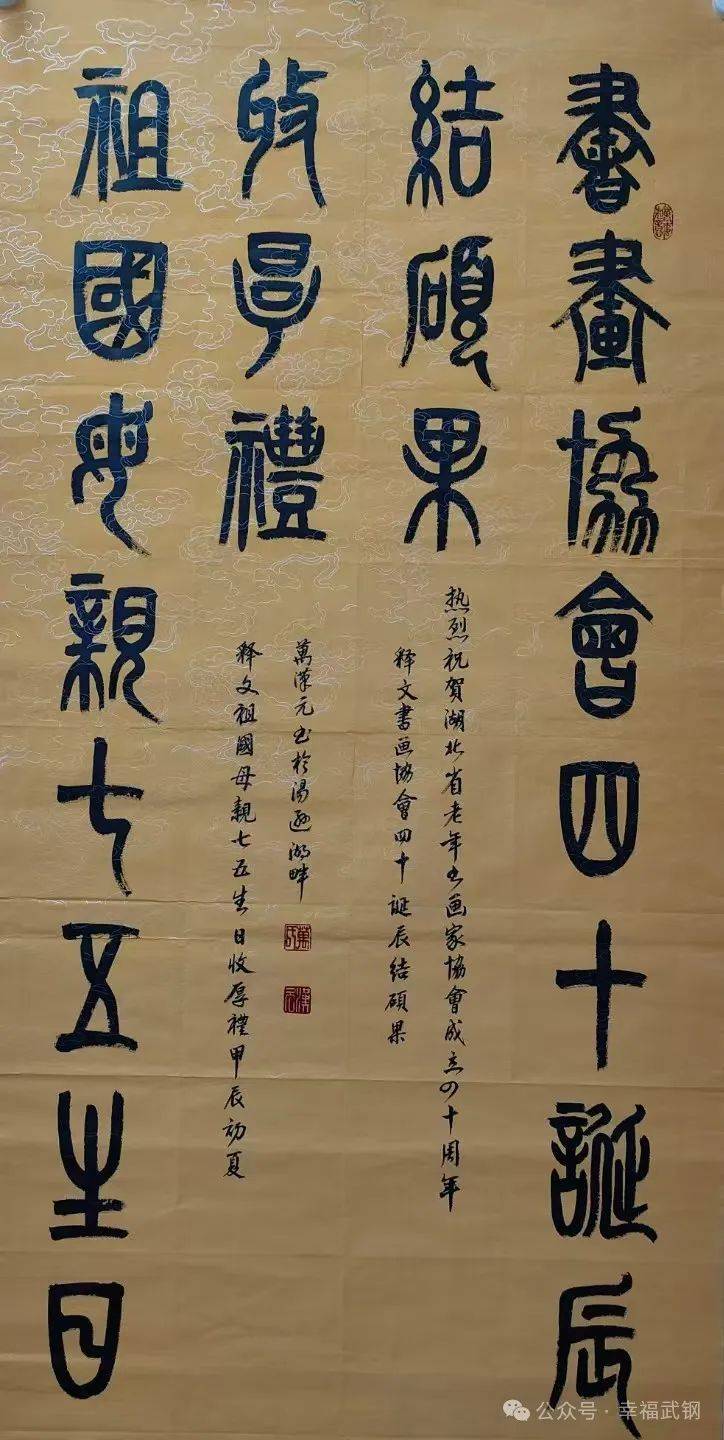 書畫協會四十誕辰
結碩果
热烈祝贺湖北省老年书画家協會成立四十周年
释文書画協會四十誕辰結碩果
祖國母親七五生日
收厚禮
释文祖國母親七五生日收厚禮甲辰初夏
萬漢元书於湯逊湖畔
公众号·幸福武钢